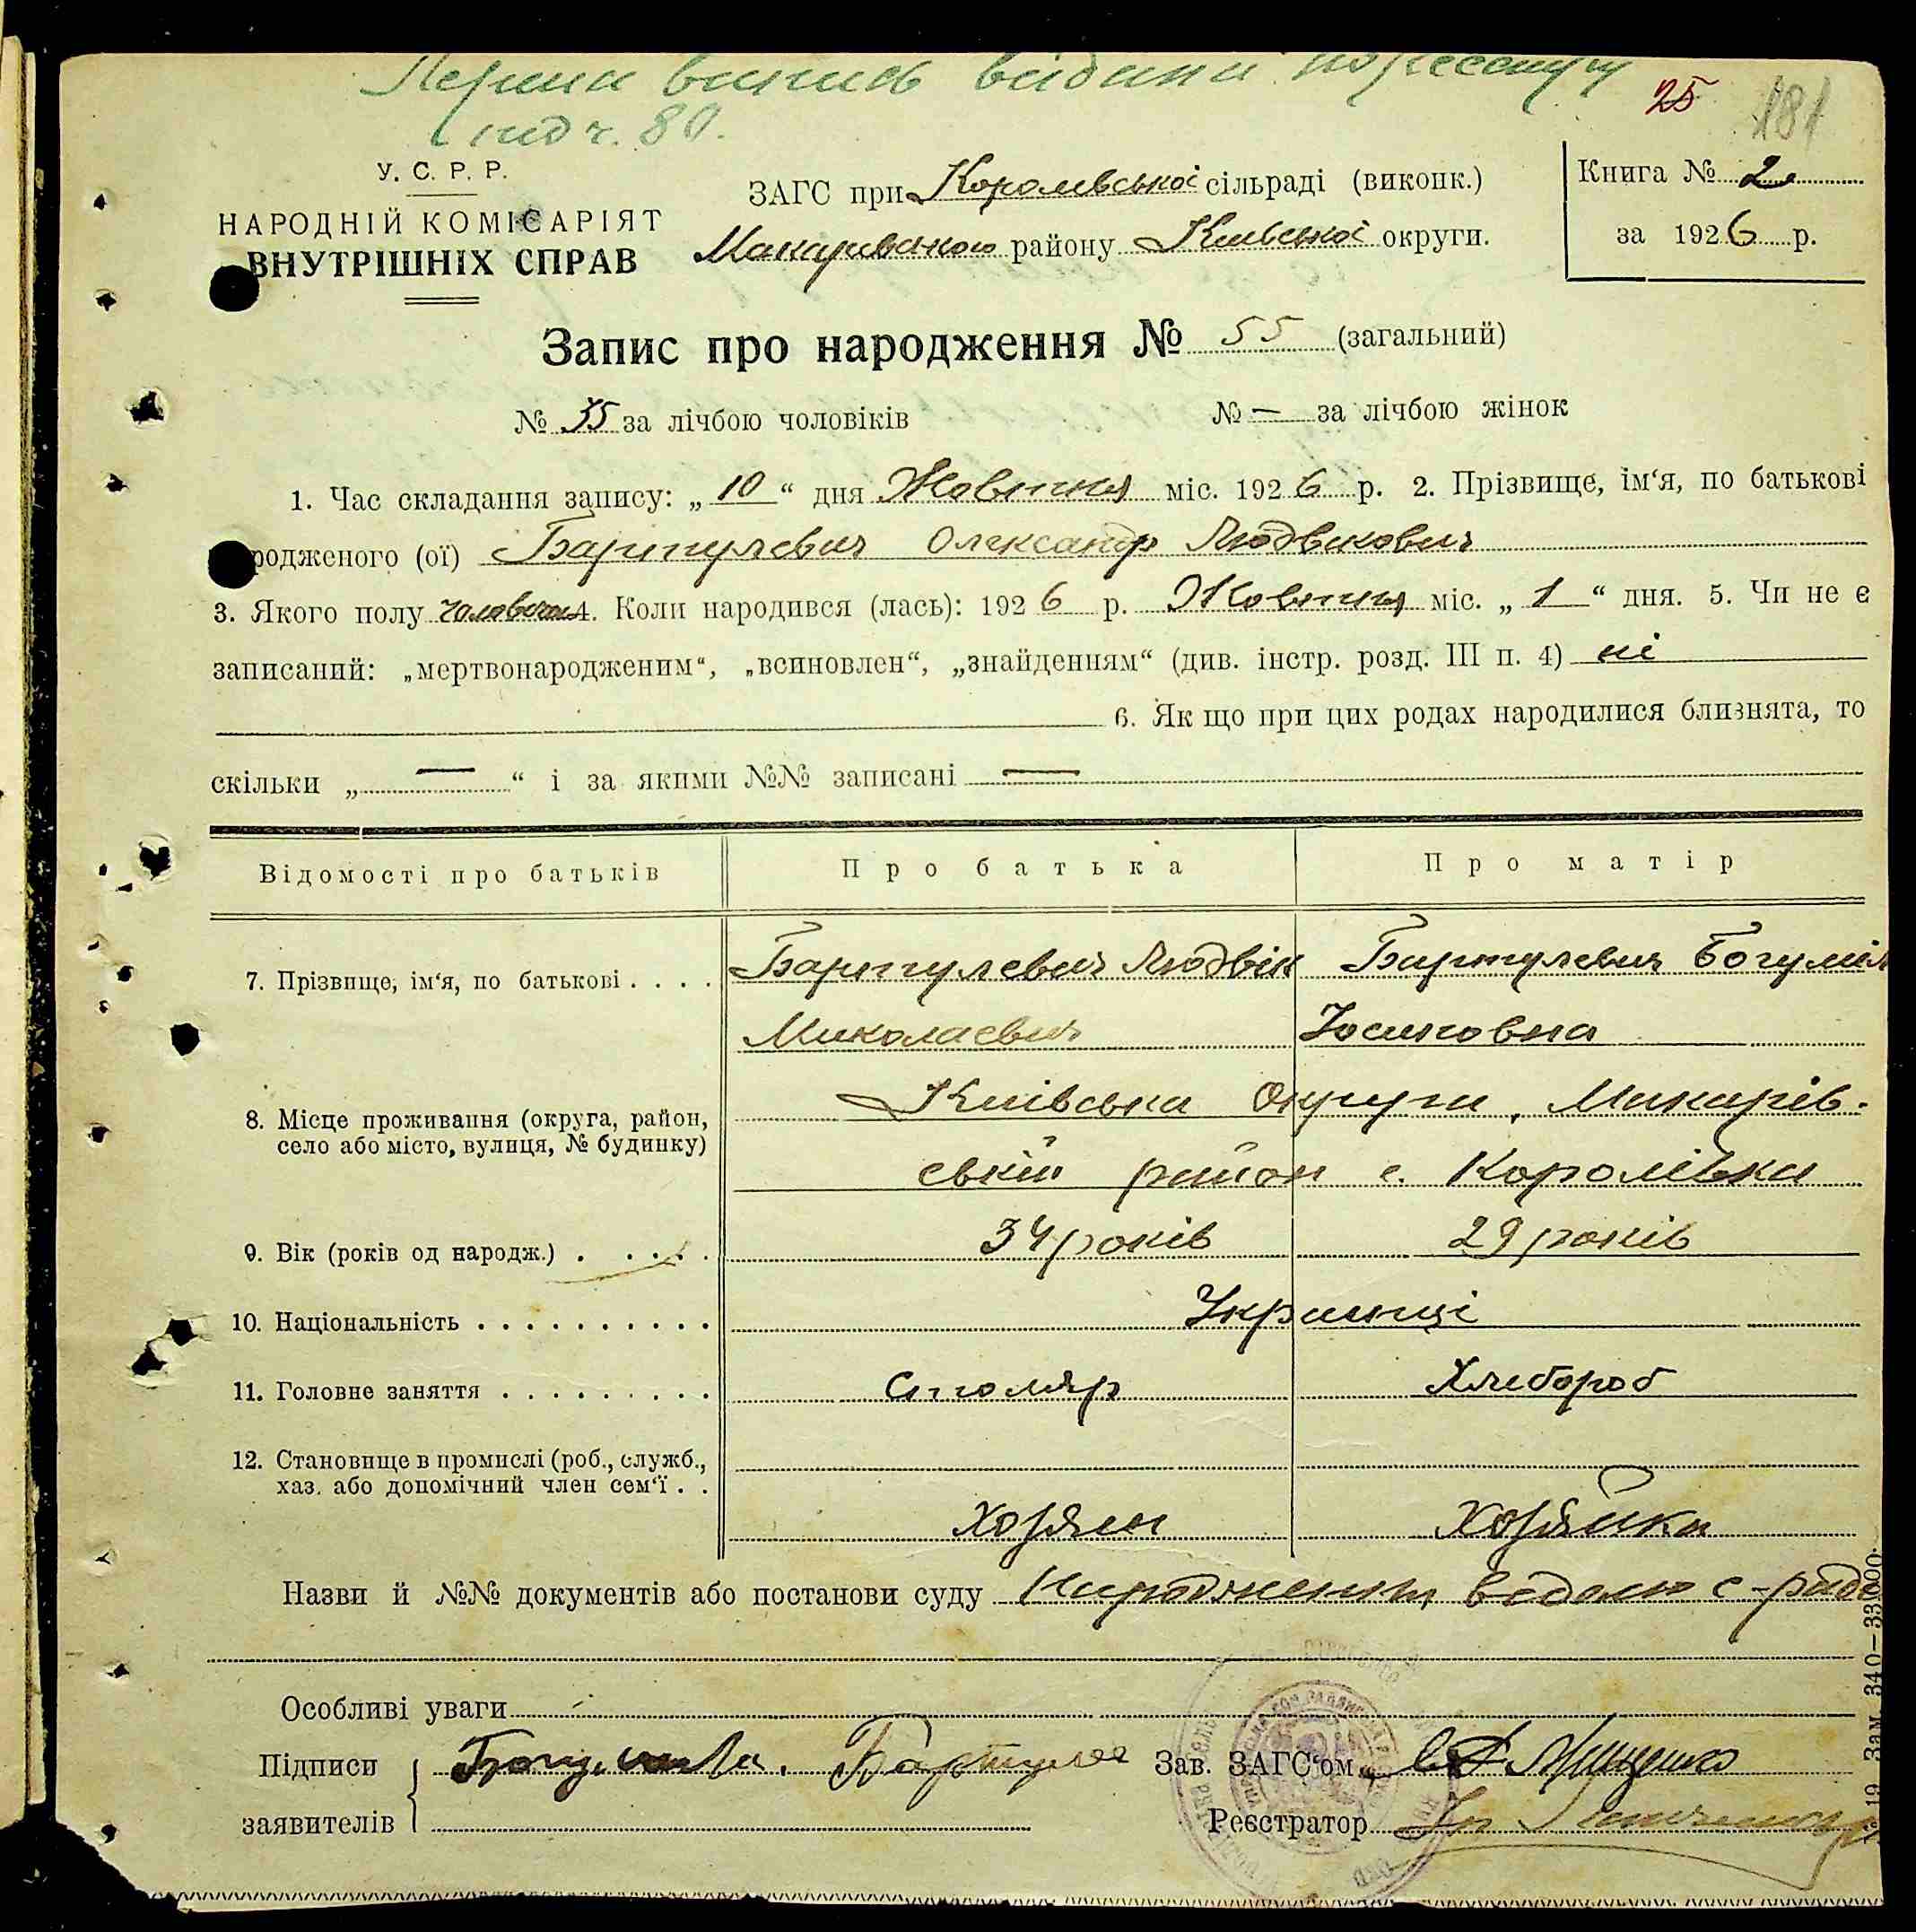 25 181
під ч. 80.
У. С. Р. Р.
НАРОДНІЙ КОМІСАРІЯТ
ВНУТРІШНІХ СПРАВ
ЗАГС при Королівської сільраді (виконк.)
Макарівського району Київської округи.
Книга № 2
за 1926 р.
Запис про народження № 55 (загальний)
№ 35 за лічбою чоловіків № — за лічбою жінок
1. Час складання запису: „10“ дня Жовтня міс. 1926 р. 2. Прізвище, ім‘я, по батькові
родженого (ої) Бартулевич Олександр Людвикович
3. Якого полу чоловічого 4. Коли народився (лась): 1926 р. Жовтня міс. „1“ дня. 5. Чи не є
записаний: „мертвонародженим“, „всиновлен“, „знайденням“ (див. інстр. розд. III п. 4) ні
6. Як що при цих родах народилися близнята, то
скільки „—“ і за якими №№ записані —
Відомості про батьків Про батька Про матір
7. Прізвище, ім‘я, по батькові . . . . Бартулевич Людвік Бартулевич Богуміл
Миколаєвич Йосиповна
8. Місце проживання (округа, район, село або місто, вулиця, № будинку) Київська Округи, Макарів-
ській район с. Королівка
9. Вік (років од народж.) . . . . . 34 років 29 років
10. Національність . . . . . . . . . . Українці
11. Головне заняття . . . . . . . . . Столяр Хлебороб
12. Становище в промислі (роб., служб.,
хаз. або допомічний член сем‘ї . . Хозяин Хозяйка
Назви й №№ документів або постанови суду Народження відомо с-раді
Особливі уваги
Підписи заявителів Бартулев Зав. ЗАГС‘ом
Реєстратор
№ 19 Зам. 340—33000.